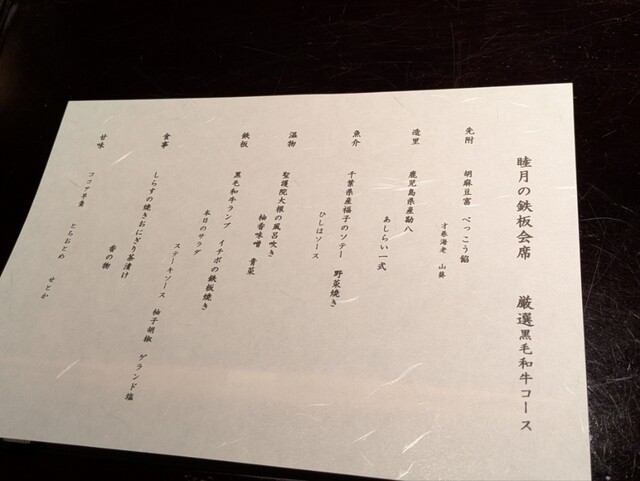 睦月の鉄板会席　厳選黒毛和牛コース
先附　胡麻豆富　べっこう餡
才巻海老　山葵
造里　鹿児島県産勘八
あしらい一式
魚介　千葉県産福子のソテー　野菜焼き
ひしほソース
温物　聖護院大根の風呂吹き
柚香味噌　青菜
鉄板　黒毛和牛ランプ　イチボの鉄板焼き
本日のサラダ
ステーキソース　柚子胡椒　ゲランド塩
食事　しらすの焼きおにぎり茶漬け
香の物
甘味　ココア羊羹　とちおとめ　せとか